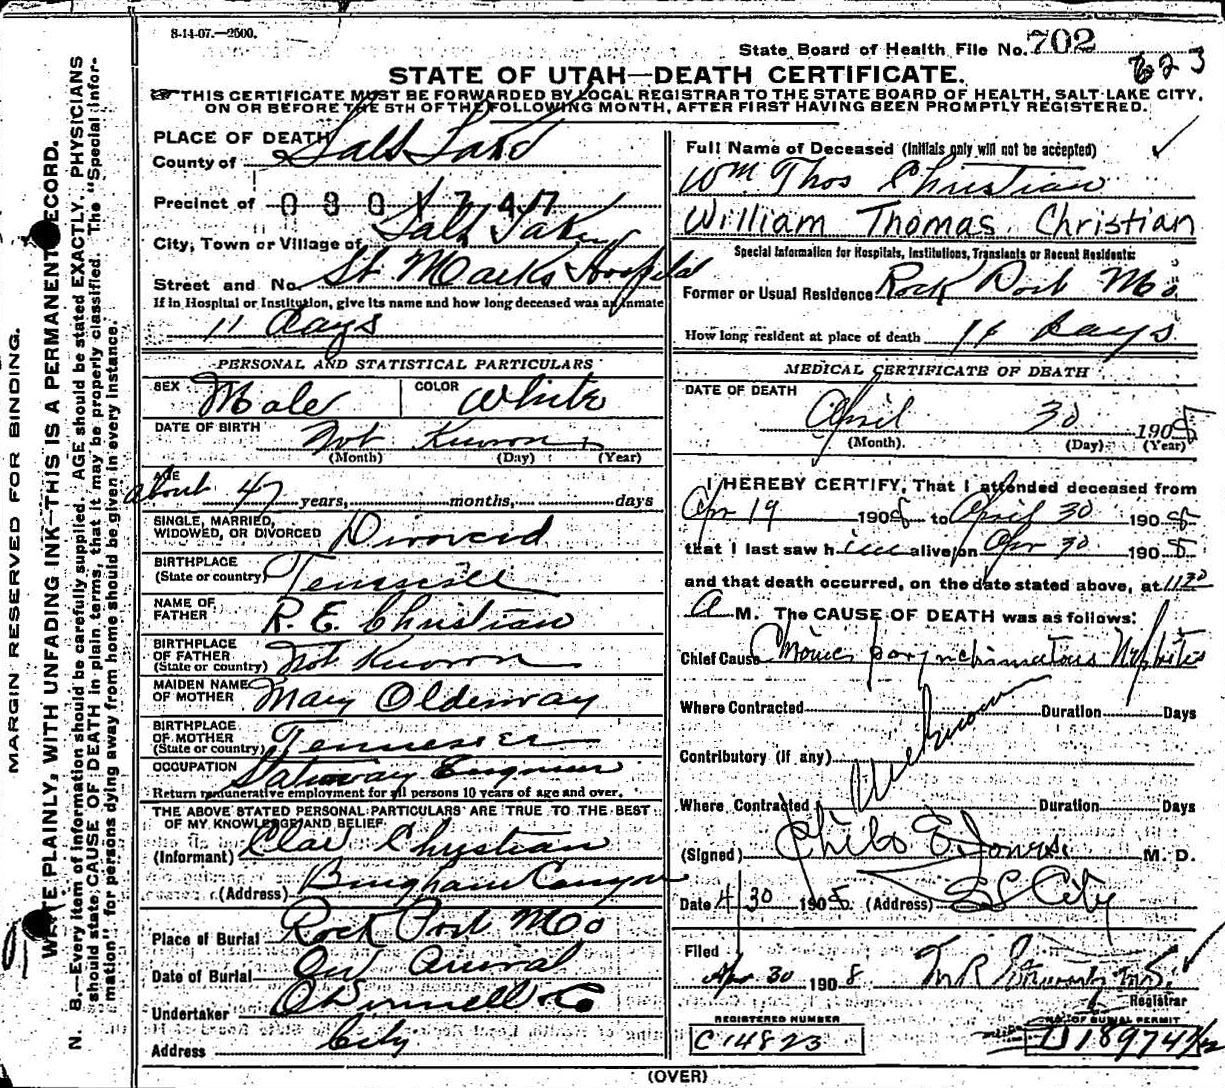 8-14-07.—2500.
State Board of Health File No. 702
823
STATE OF UTAH—DEATH CERTIFICATE.
THIS CERTIFICATE MUST BE FORWARDED BY LOCAL REGISTRAR TO THE STATE BOARD OF HEALTH, SALT LAKE CITY,
ON OR BEFORE THE 5TH OF THE FOLLOWING MONTH, AFTER FIRST HAVING BEEN PROMPTLY REGISTERED.
MARGIN RESERVED FOR BINDING.
WRITE PLAINLY, WITH UNFADING INK—THIS IS A PERMANENT RECORD.
N. B.—Every item of information should be carefully supplied. AGE should be stated EXACTLY. PHYSICIANS
should state CAUSE OF DEATH in plain terms, that it may be properly classified. The "Special Infor-
mation" for persons dying away from home should be given in every instance.
PLACE OF DEATH
County of Salt Lake
Precinct of 0301747
City, Town or Village of Salt Lake
Street and No. St Marks Hospital
If in Hospital or Institution, give its name and how long deceased was an inmate
11 days
PERSONAL AND STATISTICAL PARTICULARS
SEX Male COLOR White
DATE OF BIRTH Not Known
(Month) (Day) (Year)
AGE about 47 years, months, days
SINGLE, MARRIED,
WIDOWED, OR DIVORCED Divorced
BIRTHPLACE
(State or country) Tennessee
NAME OF
FATHER R. E. Christian
BIRTHPLACE
OF FATHER
(State or country) Not Known
MAIDEN NAME
OF MOTHER Mary Oldenway
BIRTHPLACE
OF MOTHER
(State or country) Tennessee
OCCUPATION Stationary Engineer
Return remunerative employment for all persons 10 years of age and over.
THE ABOVE STATED PERSONAL PARTICULARS ARE TRUE TO THE BEST
OF MY KNOWLEDGE AND BELIEF
(Informant) Christian
(Address) Bingham Canyon
Place of Burial Rock Port Mo
Date of Burial On Arrival
Undertaker O'Donnell & Co
Address City
Full Name of Deceased (Initials only will not be accepted)
Wm Thos Christian
William Thomas Christian
Special Information for Hospitals, Institutions, Transients or Recent Residents:
Former or Usual Residence Rock Port Mo.
How long resident at place of death 11 days
MEDICAL CERTIFICATE OF DEATH
DATE OF DEATH
April 30 1908
(Month) (Day) (Year)
I HEREBY CERTIFY, That I attended deceased from
Apr 19 1908 to April 30 1908
that I last saw him alive on Apr 30 1908
and that death occurred, on the date stated above, at 11 30
A M. The CAUSE OF DEATH was as follows:
Chief Cause Chronic parynchimatous Nephritis
Where Contracted Duration Days
Unknown
Contributory (if any)
Where Contracted Duration Days
(Signed) Philo E. Jones. M. D.
Date 4/30 1908 (Address) S L City
Filed
Apr 30 1908 M R
Registrar
REGISTERED NUMBER
C 14823
NO. OF BURIAL PERMIT
(OVER)